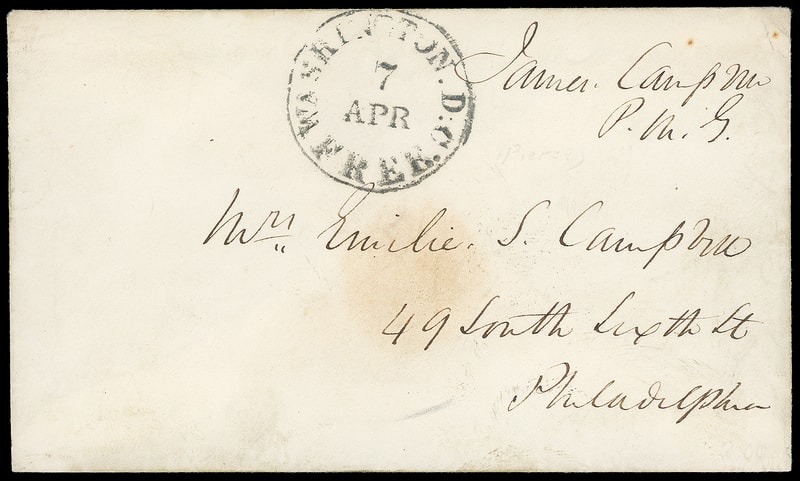 WASHINGTON. D.C.
7
APR
FREE.
James. Campbell
P. M. G.
Mrs. Emilie. S. Campbell
49 South Sixth St
Philadelphia